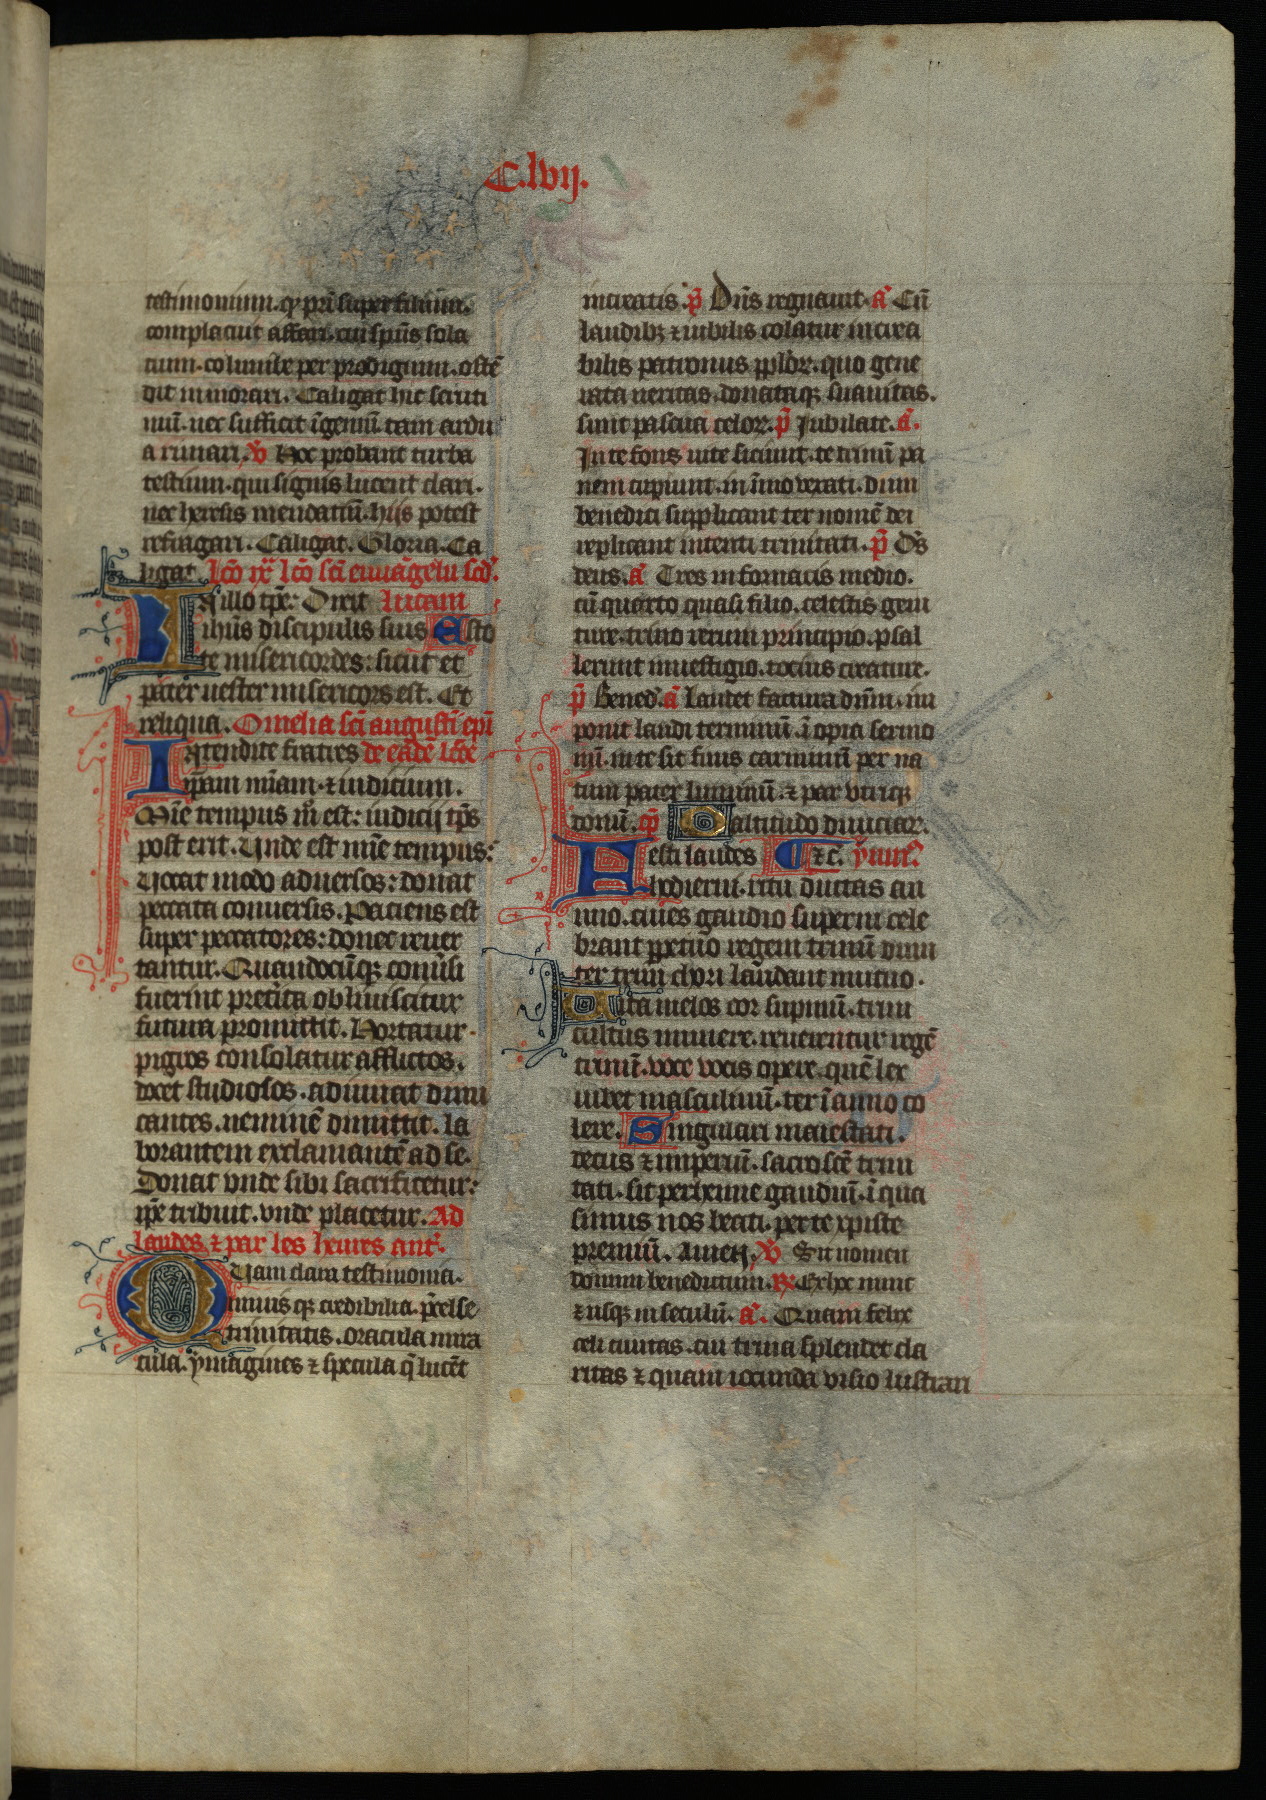 C.lvij.
testimonium. qͥ pr̄i super filium.
complacuit affari. cui sp̄us sola
cium. columbe per prodigium. ostē
dit in morari. Caligat hic scruti
niū. nec sufficit īgeniū tam ardu
a rimari. ℣ Hec probant turba
testium. qui signis lucent clari.
nec heresis mendatiū. hijs potest
refragari. Caligat. Gloria. Ca
ligat. lcō ix͛ lcō sc̄i euuāgelii scd͛.
In illo tp̄e: Dixit lucam
ihūs discipulis suis Esto
te misericordes: sicut et
pater uester misericors est. Et
reliqua. Omelia sc̄i augustī ep̄i
Intendite fratres de eadē lcōe
ip̄am mīam. ⁊ iudicium.
Mīe tempus m̊ est: iudicij tp̄s
post erit. Unde est mīe tempus:
Uocat modo aduersos: donat
peccata conuersis. Paciens est
super peccatores: donec reuer
tantur. Quandocūqꝫ conūsi
fuerint preͭita obliuiscitur
futura promittit. Hortatur
pigros consolatur afflictos.
docet studiosos. adiuuat dimi
cantes. neminē dimittit. la
borantem exclamantē ad se.
Donat unde sibi sacrificetur:
ip̄e tribuit. unde placetur. Ad
laudes ⁊ par les heures ant͛.
Quam clara testimonia.
nimis qꝫ credibilia. p̄celse
trinitatis. oracula mira
cula. ymagines ⁊ specula q̄ lucēt
increatis. p̄ Dn̄s regnauit. a͛ Cū
laudibꝫ ⁊ iubilis colatur incircū
bilis patronus pp̄loꝝ. quo gene
rata ueritas. donataqꝫ suauitas.
sunt pascua celoꝝ. p̄ Iubilate. a͛.
In te fons uite siciunt. te trinū pa
nem cupiunt. in īmo uexati. dum
benedici supplicant ter nomē dei
replicant intenti trinitati. p̄ Ds̄
deus. a͛ Tres in fornacis medio.
cū quarto quasi filio. celestis geni
ture. trino rerum principio. psal
lerunt in uestigio. tocius creature.
p̄ Bened͛. a͛ Laudet factura dn̄m. im
ponit laudi terminū. ī opra sermo
nū. in te sit finis carminū per na
tum pater luminū. ⁊ par utriqꝫ
donū. cap̄ O altitudo diuiciaꝝ.
Festi laudes ⁊c̄. ymn͛.
hodierni. ritu ductas an
nuo. ciues gaudio superni cele
brant ppetuo regem trinū dum
ter trini chori laudant mutuo.
Ita melos cor supinū. trini
cultus munere. reuerentur regē
trinū. uoce uocis opere. quē lex
iubet masculinū. ter ī anno co
lere. Singulari maiestati.
decus ⁊ imperiū. sacroscē trini
tati. sit perhenne gaudiū. ī qua
simus nos beati. per te xpiste
premiū. Amen. ℣ Sit nomen
domini benedictum. ℞ Ex hoc nunc
⁊ usqꝫ in seculū. a͛. Quam felix
celi ciuitas. cui trina splendet cla
ritas ⁊ quam iocunda uisio lustran